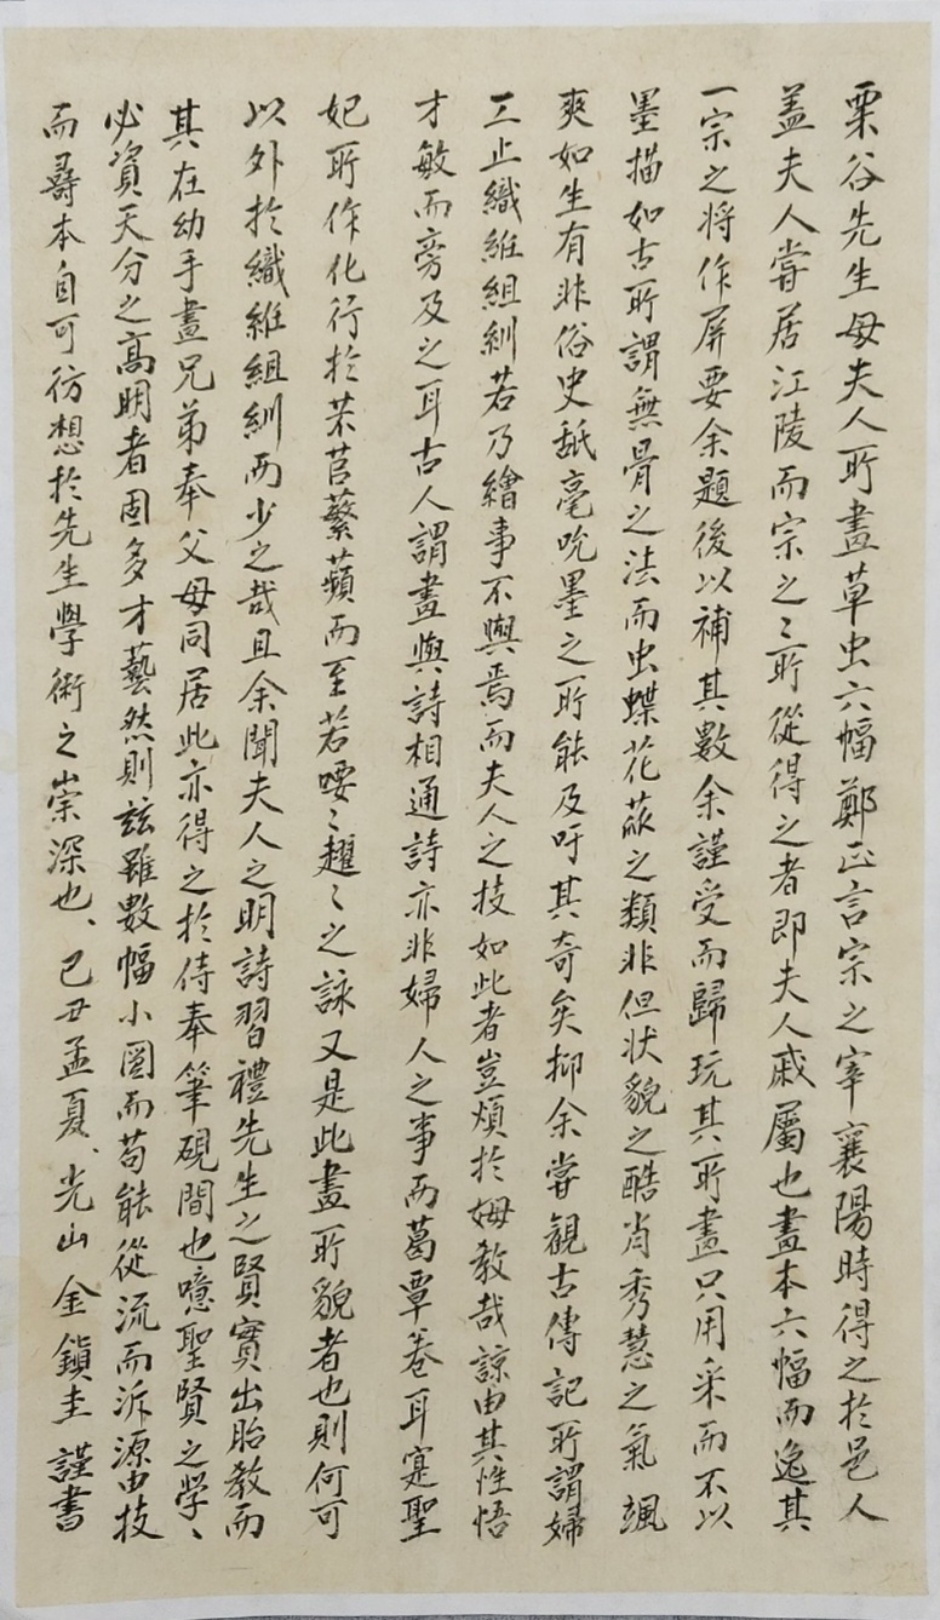 栗谷先生母夫人所畫草虫六幅鄭正言宗之宰襄陽時得之於邑人
盖夫人嘗居江陵而宗之〻所從得之者即夫人戚屬也畫本六幅而逸其
一宗之将作屏要余題後以補其數余謹受而歸玩其所畫只用采而不以
墨描如古所謂無骨之法而虫蝶花蓏之類非但状貌之酷肖秀慧之氣颯
爽如生有非俗史舐毫吮墨之所能及吁其奇矣抑余嘗觀古傳記所謂婦
工止織維組紃若乃繪事不與焉而夫人之技如此者豈煩於姆教哉諒由其性悟
才敏而旁及之耳古人謂畫與詩相通詩亦非婦人之事而葛覃卷耳寔聖
妃所作化行於芣苢蘩蘋而至若喓〻趯〻之詠又是此畫所貌者也則何可
以外於織維組紃而少之哉且余聞夫人之明詩習禮先生之賢實出胎教而
其在幼手畫兄弟奉父母同居此亦得之於侍奉筆硯間也噫聖賢之學〻
必資天分之高明者固多才藝然則玆雖數幅小圖而苟能從流而泝源由技
而尋本自可彷想於先生學術之崇深也、己丑孟夏、光山金鎭圭 謹書